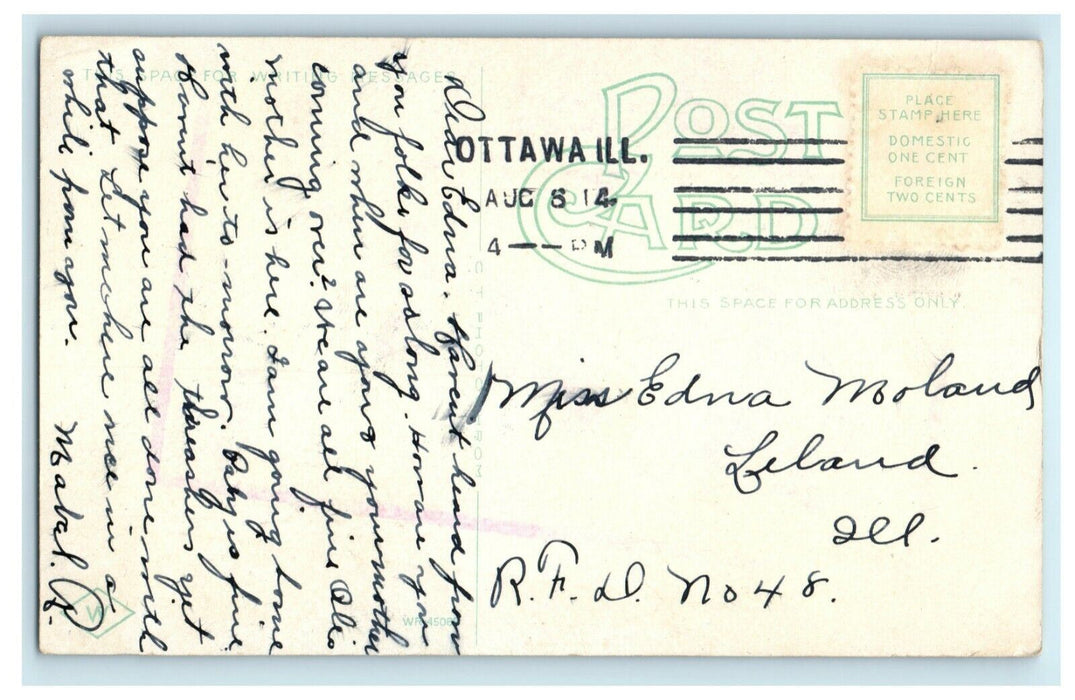 THIS SPACE FOR WRITING MESSAGES
POST
CARD
PLACE
STAMP HERE
DOMESTIC
ONE CENT
FOREIGN
TWO CENTS
OTTAWA ILL.
AUG 6 14
4 — — PM
THIS SPACE FOR ADDRESS ONLY.
Dear Edna. Havent heard from
you folks for so long. How are you
and when are you & your mother
coming over? We are all fine
mother is here. I am going home
with her to-morrow. Baby is fine.
Havint had the threashers yet
suppose you are all done with
that. Let me here once in a
while from you. Mabel. G.
Miss Edna Moland
Leland.
Ill.
R.F.D. No 48.
W